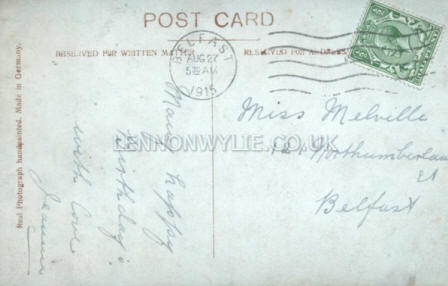 POST CARD
RESERVED FOR WRITTEN MATTER
RESERVED FOR ADDRESS
BELFAST
AUG 27
5 AM
1915
Many happy
birthday's
with love
Jeannie
Miss Melville
Northumberland
St
Belfast
Real Photograph handpainted. Made in Germany.
LENNONWYLIE.CO.UK